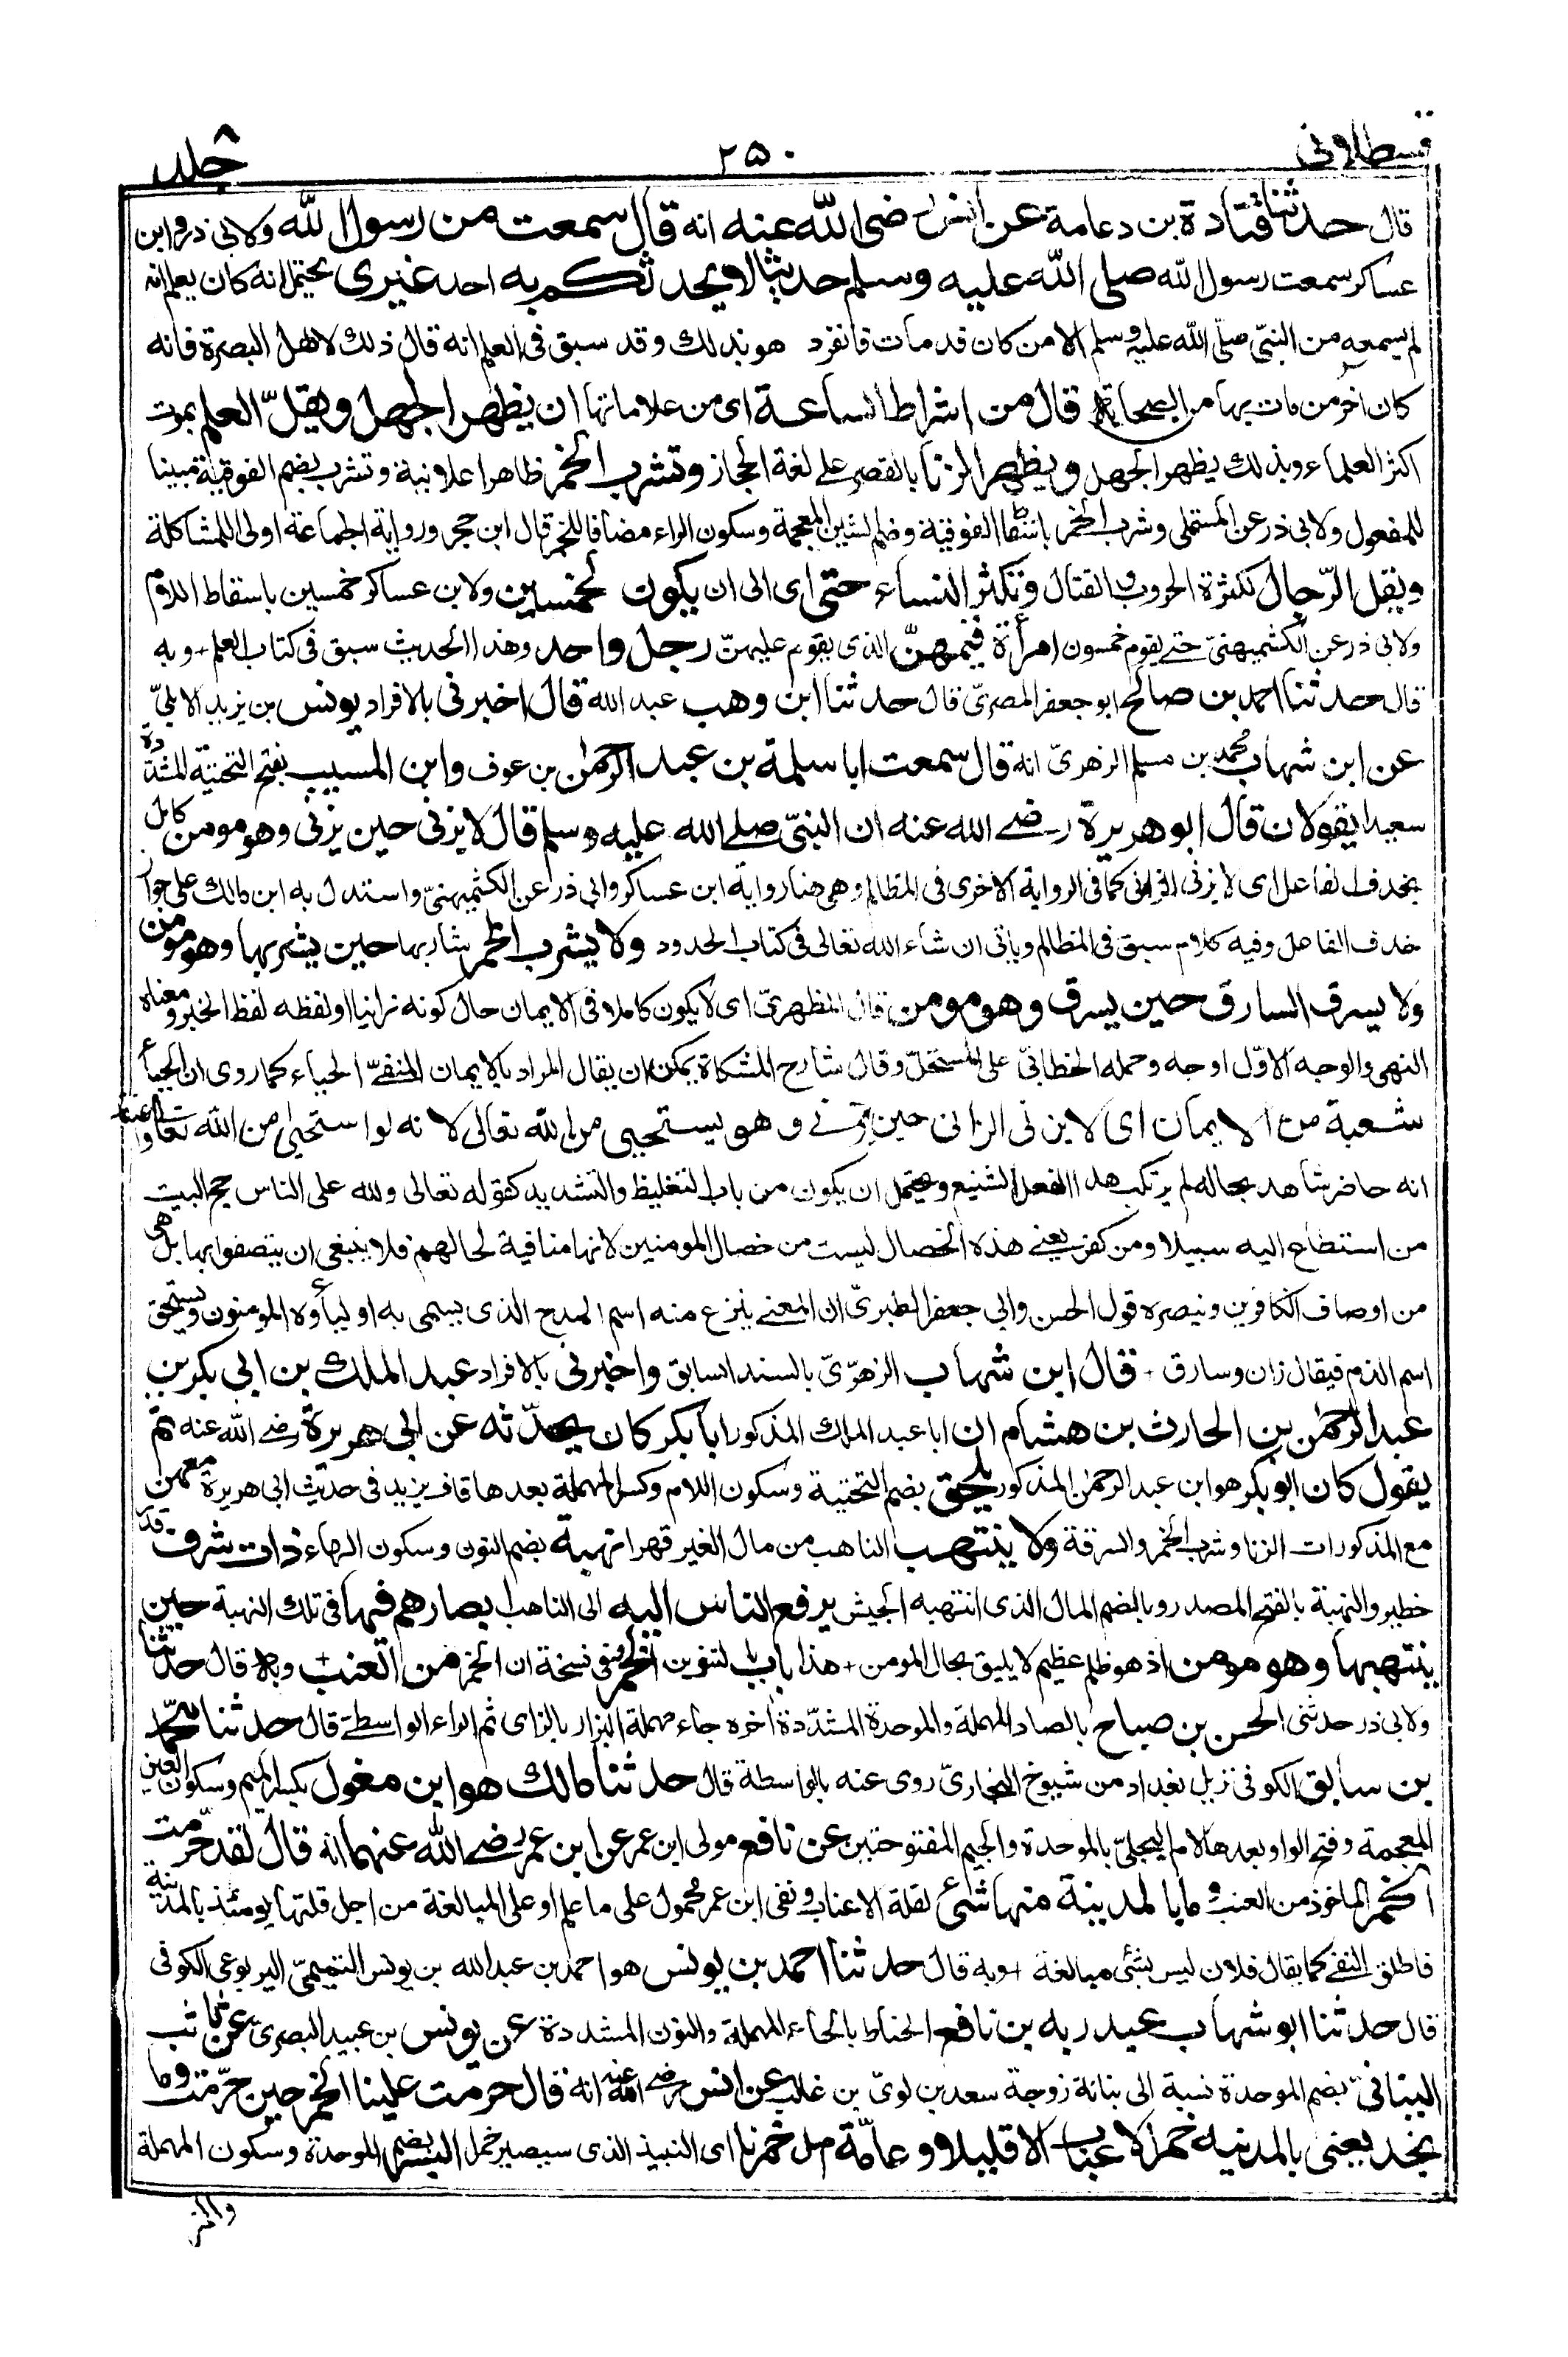 قسطلانی
٢٥٠
جلد ٨
قال حدثنا قتادة بن دعامة عن انس رضى الله عنه انه قال سمعت من رسول الله ولابى ذر وابن
عساكر سمعت رسول الله صلى الله عليه وسلم حديثا لا يحدثكم به احد غيرى يحتمل انه كان يعلم انه
لم يسمعه من النبىّ صلّى الله عليه وسلم الا من كان قد مات فانفرد هو بذلك وقد سبق فى العلم انه قال ذلك لاهل البصرة فانه
كان آخر من مات بها من الصحابة قال من اشراط الساعة اى من علاماتها ان يظهر الجهل ويقلّ العلم بموت
اكثر العلماء وبذلك يظهر الجهل ويظهر الزنا بالقصر على لغة الحجاز وتشرب الخمر ظاهرا علانية وتشرب بضم الفوقية مبينا
للمفعول ولابى ذر عن المستملى وشرب الخمر باسقاط الفوقية وضم الشين المعجمة وسكون الراء مضافا للخمر قال ابن حجر ورواية الجماعة اولى للمشاكلة
ويقل الرّجال لكثرة الحروب والقتال وتكثر النساء حتى اى الى ان يكون لخمسين ولابن عساكر خمسين باسقاط اللام
ولابى ذر عن الكشميهنىّ حتے يقوم خمسون امرأة قيمهنّ الذى يقوم عليهنّ رجل واحد وهذا الحديث سبق فى كتاب العلم + وبه
قال حدثنا احمد بن صالح ابو جعفر المصرىّ قال حدثنا ابن وهب عبد الله قال اخبرنى بالافراد يونس بن يزيد الايلىّ
عن ابن شهاب محمد بن مسلم الزهرىّ انه قال سمعت ابا سلمة بن عبد الرحمٰن بن عوف وابن المسيب بفتح التحتية المشددة
سعيدا يقولان قال ابو هريرة رضے الله عنه ان النبىّ صلے الله عليه وسلم قال لا يزنى حين يزنى وهو مومن كامل
بحذف الفاعل اى لا يزنى الزانى كما فى الرواية الاخرى فى المظالم وهى هنا رواية ابن عساكر وابى ذر عن الكشميهنىّ واستدل به ابن مالك على جواز
حذف الفاعل وفيه كلام سبق فى المظالم وياتى ان شاء الله تعالى فى كتاب الحدود ولا يشرب الخمر شاربها حين يشربها وهو مومن
ولا يسرق السارق حين يسرق وهو مومن قال المظهرىّ اى لا يكون كاملا فى الايمان حال كونه زانيا او لفظه لفظ الخبر ومعناه
النهى والوجه الاوّل اوجه وحمله الخطابىّ على المستحلّ وقال شارح المشكاة يمكن ان يقال المراد بالايمان المنفےّ الحياء كما روى ان الحياء
شعبة من الايمان اى لا يزنى الزانى حين يزنے وهو يستحيى من الله تعالى لانه لو استحيى من الله تعالى واعتقد
انه حاضر شاهد بحاله لم يرتكب هذا الفعل الشنيع ويحتمل ان يكون من باب التغليظ والتشديد كقوله تعالى ولله على الناس حج البيت
من استطاع اليه سبيلا ومن كفر يعنے هذه الخصال ليست من خصال المومنين لانها منافية لحالهم فلا ينبغى ان يتصفوا بها بل هى
من اوصاف الكافرين وينصره قول الحسن وابى جعفر الطبرىّ ان المعنے ينزع منه اسم المدح الذى يسمى به اولياؤه المومنون ويستحق
اسم الذم فيقال زان وسارق + قال ابن شهاب الزهرىّ بالسند السابق واخبرنى بالافراد عبد الملك بن ابى بكر بن
عبد الرحمٰن بن الحارث بن هشام ان ابا عبد الملك المذكور ابا بكر كان يحدّثه عن ابى هريرة رضے الله عنه ثم
يقول كان ابو بكر هو ابن عبد الرحمٰن المذكور يلحق بضم التحتية وسكون اللام وكسر المهملة بعدها قاف يزيد فى حديث ابى هريرة معهن
مع المذكورات الزنا وشرب الخمر والسرقة ولا ينتهب الناهب من مال الغير قهرا نهبة بضم النون وسكون الهاء ذات شرف قدر
خطير والنهبة بالفتح المصدر وبالضم المال الذى انتهبه الجيش يرفع الناس اليه الى الناهب ابصارهم فيها فى تلك النهبة حين
ينتهبها وهو مومن اذ هو ظلم عظيم لا يليق بحال المومن + هذا باب بالتنوين الخمر وفى نسخة ان الخمر من العنب + وبه قال حدثنا
ولابى ذر حدثنى الحسن بن صباح بالصاد المهملة والموحدة المشدّدة آخره حاء مهملة البزار بالزاى ثم الراء الواسطے قال حدثنا محمد
بن سابق الكوفى نزيل بغداد من شيوخ البخارىّ روى عنه بالواسطة قال حدثنا مالك هو ابن مغول بكسر الميم وسكون الغين
المعجمة وفتح الواو بعدها لام البجلىّ بالموحدة والجيم المفتوحتين عن نافع مولى ابن عمر عن ابن عمر رضے الله عنهما انه قال لقد حرّمت
الخمر الماخوذ من العنب وما بالمدينة منها شئ لقلة الاعناب ونفى ابن عمر محمول على ما علم او على المبالغة من اجل قلتها يومئذ بالمدينة
فاطلق النفے كما يقال فلان ليس بشئ مبالغة + وبه قال حدثنا احمد بن يونس هو احمد بن عبد الله بن يونس التميمىّ اليربوعى الكوفى
قال حدثنا ابو شهاب عبد ربه بن نافع الحناط بالحاء المهملة والنون المشددة عن يونس بن عبيد البصرىّ عن ثابت
البنانىّ بضم الموحدة نسبة الى بنانة زوجة سعد بن لوىّ بن غالب عن انس رضے الله عنه انه قال حرمت علينا الخمر حين حرّمت وما
نجد يعنى بالمدينة خمر الاعناب الا قليلا وعامّة خمرنا اى النبيذ الذى سيصير خمرا البسر بضم الموحدة وسكون المهملة
والتمر